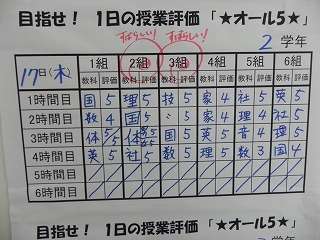 目指せ！ 1日の授業評価「★オール5★」
すばらしい! すばらしい!
2 学年
17日(木) 1組 2組 3組 4組 5組 6組
教科 評価 教科 評価 教科 評価 教科 評価 教科 評価 教科 評価
1時間目 国 5 理 5 技 5 家 4 社 5 英 5
2時間目 数 4 国 5 〃 5 家 4 理 4 社 5
3時間目 体 5 体 5 国 5 英 5 音 4 理 5
4時間目 英 5 社 5 数 5 理 5 数 3 国 4
5時間目
6時間目
目指せ！ 1日の授業評価「★オール5★」